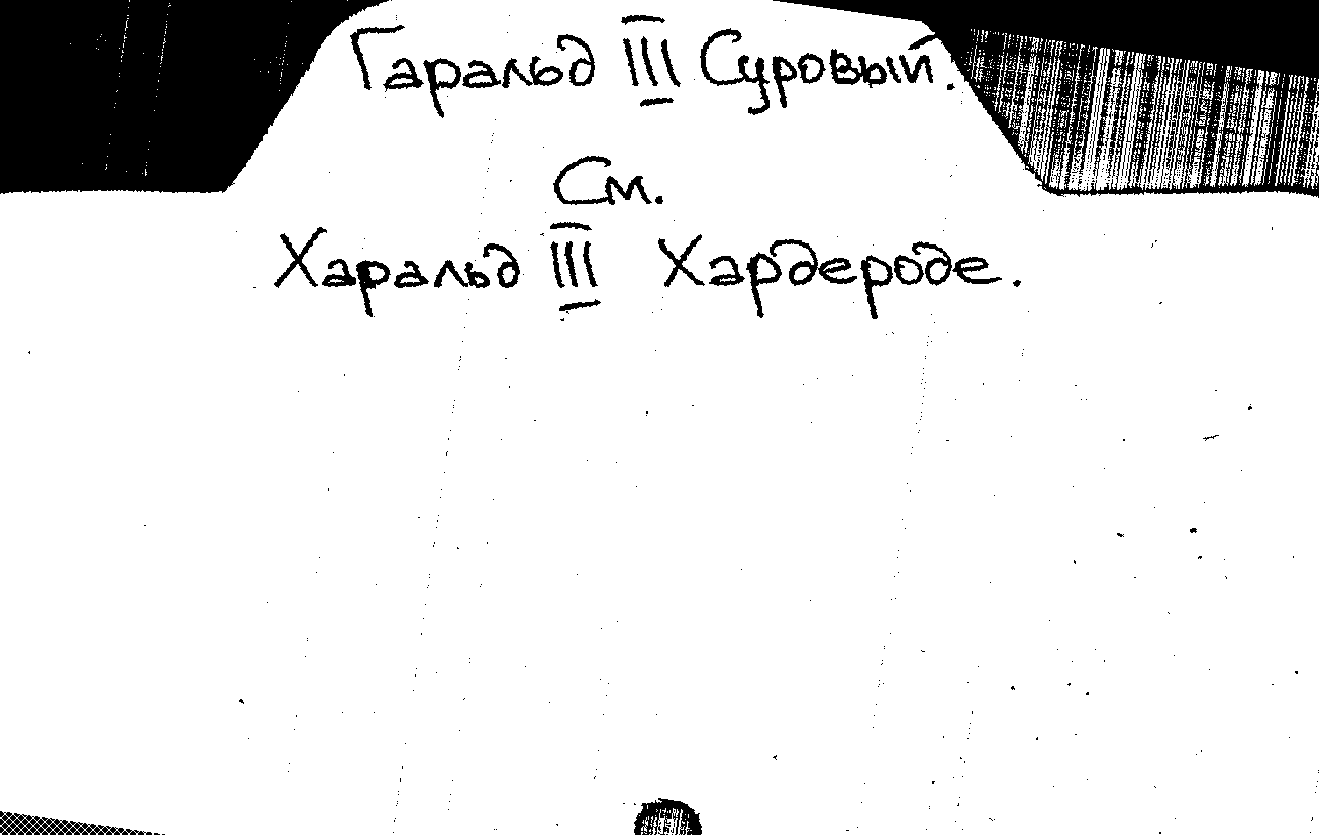 Гаральд III Суровый.
См.
Харальд III Хардероде.